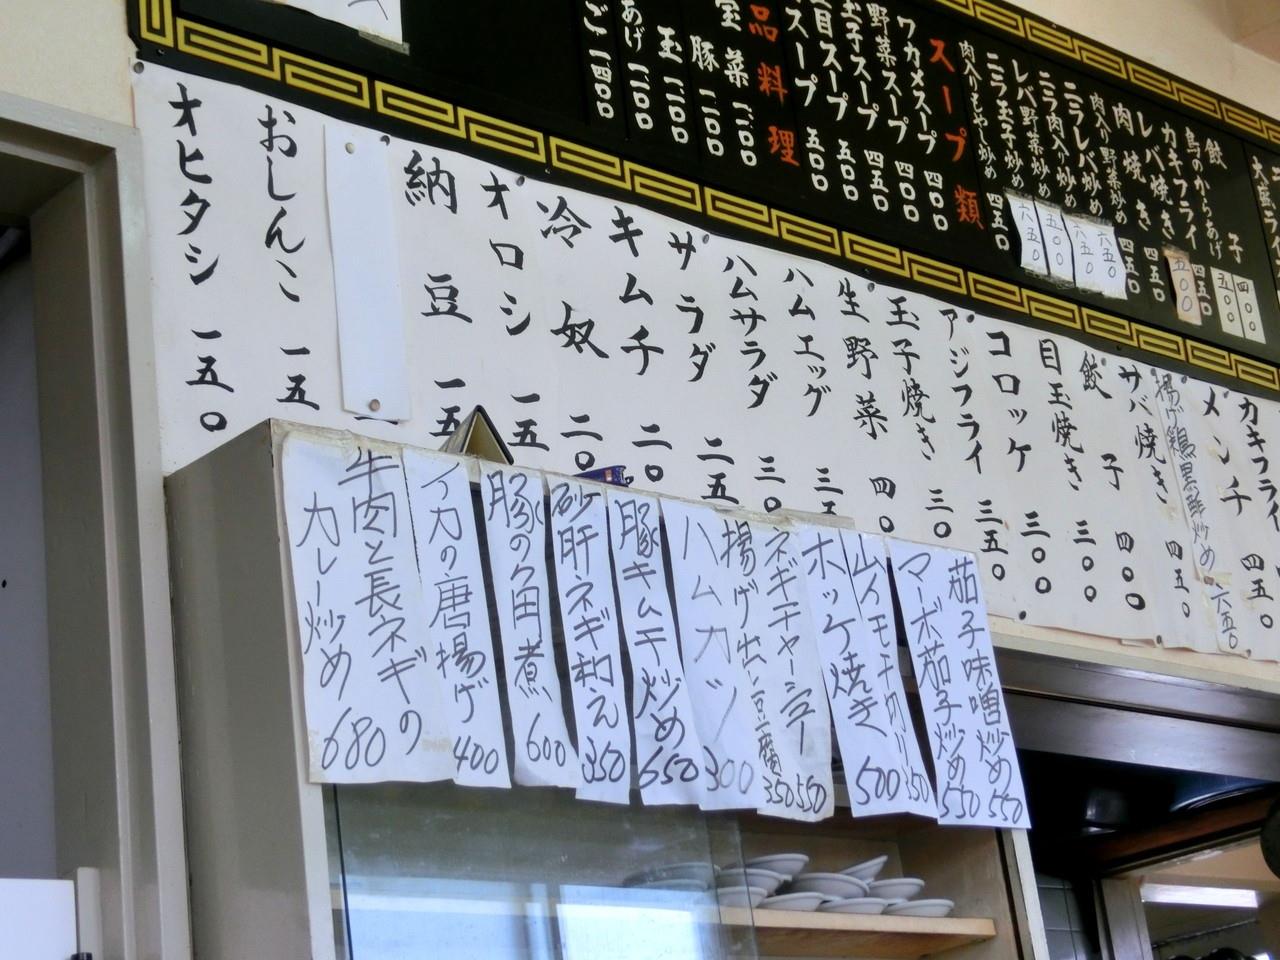 大盛ライス
餃子 四〇〇
五〇〇
鳥のからあげ 四五〇
カキフライ 五〇〇
レバ焼き 四五〇
肉焼き 四五〇
肉入り野菜炒め 六五〇
ニラレバ炒め 六五〇
ニラ肉入り炒め
レバ野菜炒め 五〇〇
ニラ玉子炒め 六五〇
肉入りもやし炒め 四五〇
スープ類
ワカメスープ 四〇〇
野菜スープ 四〇〇
玉子スープ 四五〇
目スープ 五〇〇
スープ 五〇〇
品料理
宝菜 一、一〇〇
豚 一、一〇〇
玉 一、〇〇〇
あげ 一、一〇〇
ご 一、四〇〇
カキフライ
メンチ 四五〇
揚げ鶏黒酢炒め 六五〇
サバ焼き 四五〇
餃子 四〇〇
目玉焼き 三〇〇
コロッケ 三〇〇
アジフライ 三五〇
玉子焼き 三〇
生野菜 四〇
ハムエッグ 三五
ハムサラダ 三〇
サラダ 二五
キムチ 二〇
冷奴 二〇
オロシ 一五
納豆 一五
おしんこ 一五
オヒタシ 一五〇
茄子味噌炒め 550
マーボ茄子炒め 550
山イモ千切り 350
ホッケ焼き 500
ネギチャーシュー 550
揚げ出し豆腐 350
ハムカツ 300
豚キムチ炒め 650
砂肝ネギ和え 350
豚の角煮 600
イカの唐揚げ 400
牛肉と長ネギの
カレー炒め 680